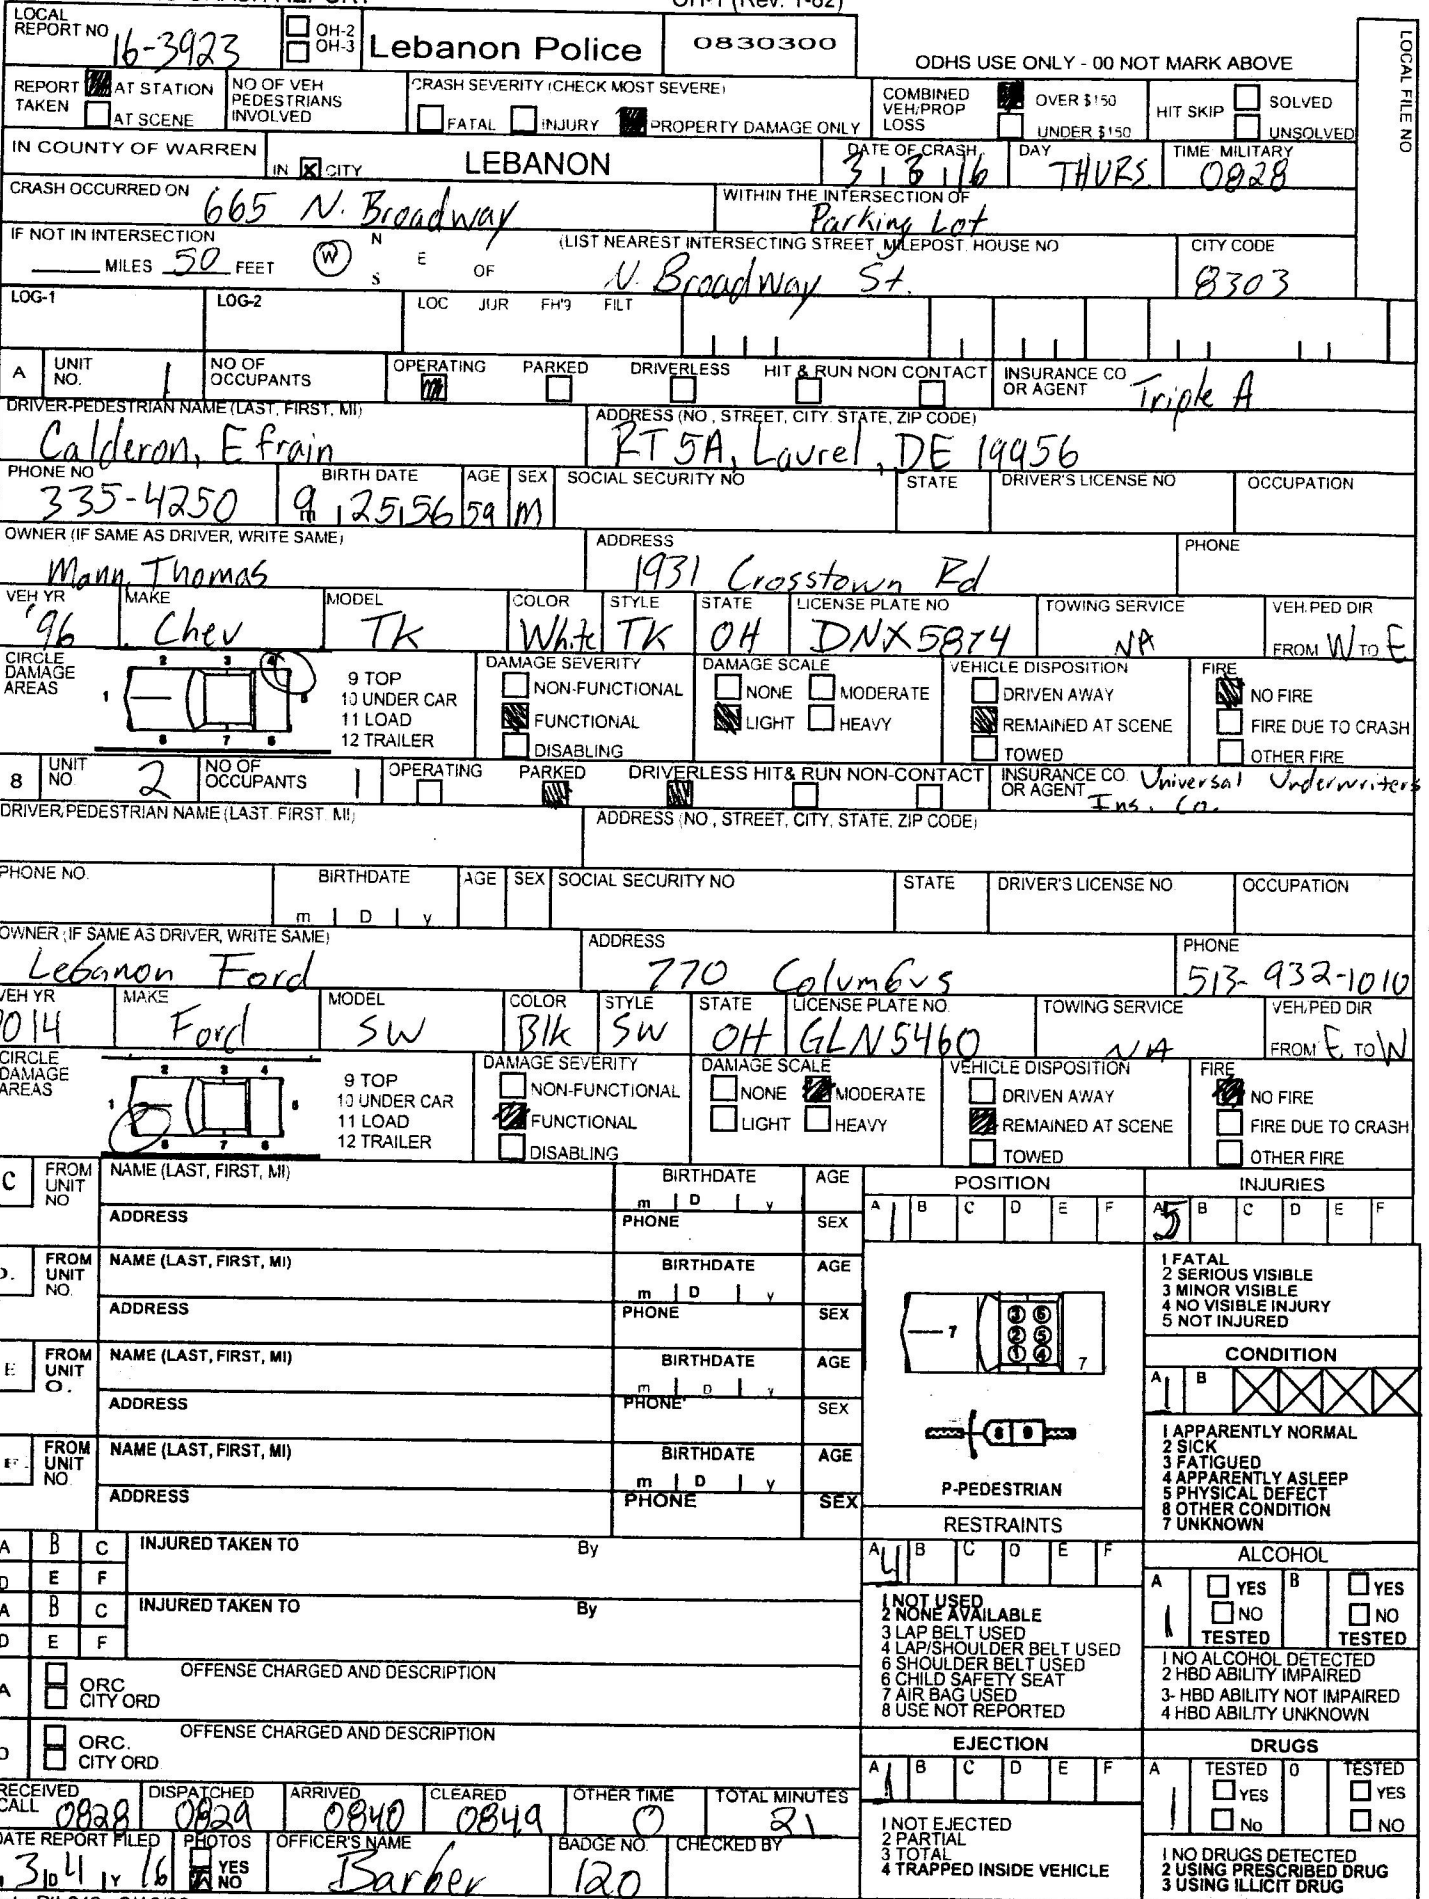 OH-1 (Rev. 1-82)
LOCAL REPORT NO 16-3923 OH-2 OH-3 Lebanon Police 0830300
ODHS USE ONLY - 00 NOT MARK ABOVE
LOCAL FILE NO
REPORT TAKEN AT STATION AT SCENE NO OF VEH PEDESTRIANS INVOLVED CRASH SEVERITY (CHECK MOST SEVERE) FATAL INJURY PROPERTY DAMAGE ONLY COMBINED VEH/PROP LOSS OVER $150 UNDER $150 HIT SKIP SOLVED UNSOLVED
IN COUNTY OF WARREN IN X CITY LEBANON DATE OF CRASH 3 3 16 DAY THURS. TIME MILITARY 0828
CRASH OCCURRED ON 665 N. Broadway WITHIN THE INTERSECTION OF Parking Lot
IF NOT IN INTERSECTION MILES 50 FEET W N S E OF (LIST NEAREST INTERSECTING STREET, MILEPOST. HOUSE NO N. Broadway St. CITY CODE 8303
LOG-1 LOG-2 LOC JUR FH'9 FILT
A UNIT NO. 1 NO OF OCCUPANTS OPERATING PARKED DRIVERLESS HIT & RUN NON CONTACT INSURANCE CO OR AGENT Triple A
DRIVER-PEDESTRIAN NAME (LAST, FIRST, MI) Calderon, Efrain ADDRESS (NO, STREET, CITY. STATE, ZIP CODE) RT 5A, Laurel, DE 19956
PHONE NO 335-4250 BIRTH DATE 9 m 25 56 AGE 59 SEX M SOCIAL SECURITY NO STATE DRIVER'S LICENSE NO OCCUPATION
OWNER (IF SAME AS DRIVER, WRITE SAME) Mann, Thomas ADDRESS 1931 Crosstown Rd PHONE
VEH YR '96 MAKE Chev MODEL TK COLOR White STYLE TK STATE OH LICENSE PLATE NO DNX5874 TOWING SERVICE NA VEH.PED DIR FROM W TO E
CIRCLE DAMAGE AREAS 1 2 3 4 5 8 7 6 9 TOP 10 UNDER CAR 11 LOAD 12 TRAILER DAMAGE SEVERITY NON-FUNCTIONAL FUNCTIONAL DISABLING DAMAGE SCALE NONE MODERATE LIGHT HEAVY VEHICLE DISPOSITION DRIVEN AWAY REMAINED AT SCENE TOWED FIRE NO FIRE FIRE DUE TO CRASH OTHER FIRE
8 UNIT NO. 2 NO OF OCCUPANTS 1 OPERATING PARKED DRIVERLESS HIT & RUN NON-CONTACT INSURANCE CO. OR AGENT Universal Underwriters Ins. Co.
DRIVER/PEDESTRIAN NAME (LAST. FIRST. MI) ADDRESS (NO, STREET, CITY, STATE, ZIP CODE)
PHONE NO. BIRTHDATE m D y AGE SEX SOCIAL SECURITY NO STATE DRIVER'S LICENSE NO OCCUPATION
OWNER (IF SAME AS DRIVER, WRITE SAME) Lebanon Ford ADDRESS 770 Columbus PHONE 513-932-1010
VEH YR 2014 MAKE Ford MODEL SW COLOR Blk STYLE SW STATE OH LICENSE PLATE NO. GLN5460 TOWING SERVICE NA VEH/PED DIR FROM E TO W
CIRCLE DAMAGE AREAS 1 2 3 4 8 7 6 9 TOP 10 UNDER CAR 11 LOAD 12 TRAILER DAMAGE SEVERITY NON-FUNCTIONAL FUNCTIONAL DISABLING DAMAGE SCALE NONE MODERATE LIGHT HEAVY VEHICLE DISPOSITION DRIVEN AWAY REMAINED AT SCENE TOWED FIRE NO FIRE FIRE DUE TO CRASH OTHER FIRE
C FROM UNIT NO NAME (LAST, FIRST, MI) BIRTHDATE m D y AGE
ADDRESS PHONE SEX
D. FROM UNIT NO. NAME (LAST, FIRST, MI) BIRTHDATE m D y AGE
ADDRESS PHONE SEX
E FROM UNIT O. NAME (LAST, FIRST, MI) BIRTHDATE m D y AGE
ADDRESS PHONE SEX
F FROM UNIT NO. NAME (LAST, FIRST, MI) BIRTHDATE m D y AGE
ADDRESS PHONE SEX
POSITION
A 1 B C D E F
7 3 6 2 5 1 4 7
8 9
P-PEDESTRIAN
INJURIES
A 5 B C D E F
1 FATAL
2 SERIOUS VISIBLE
3 MINOR VISIBLE
4 NO VISIBLE INJURY
5 NOT INJURED
CONDITION
A 1 B
1 APPARENTLY NORMAL
2 SICK
3 FATIGUED
4 APPARENTLY ASLEEP
5 PHYSICAL DEFECT
8 OTHER CONDITION
7 UNKNOWN
A B C INJURED TAKEN TO By
D E F
A B C INJURED TAKEN TO By
D E F
A ORC CITY ORD OFFENSE CHARGED AND DESCRIPTION
ORC. CITY ORD OFFENSE CHARGED AND DESCRIPTION
RESTRAINTS
A 4 B C O E F
1 NOT USED
2 NONE AVAILABLE
3 LAP BELT USED
4 LAP/SHOULDER BELT USED
6 SHOULDER BELT USED
6 CHILD SAFETY SEAT
7 AIR BAG USED
8 USE NOT REPORTED
ALCOHOL
A 1 YES NO TESTED B YES NO TESTED
1 NO ALCOHOL DETECTED
2 HBD ABILITY IMPAIRED
3- HBD ABILITY NOT IMPAIRED
4 HBD ABILITY UNKNOWN
EJECTION
A 1 B C D E F
1 NOT EJECTED
2 PARTIAL
3 TOTAL
4 TRAPPED INSIDE VEHICLE
DRUGS
A 1 TESTED YES No 0 TESTED YES NO
1 NO DRUGS DETECTED
2 USING PRESCRIBED DRUG
3 USING ILLICIT DRUG
RECEIVED CALL 0828 DISPATCHED 0829 ARRIVED 0840 CLEARED 0849 OTHER TIME 0 TOTAL MINUTES 21
DATE REPORT FILED 3 D 4 Y 16 PHOTOS YES NO OFFICER'S NAME Barber BADGE NO. 120 CHECKED BY